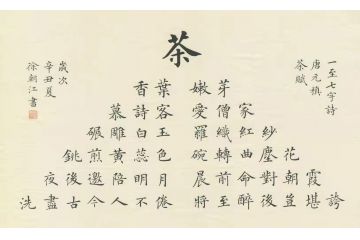 一至七字詩
唐元稹
茶賦
茶
香葉 嫩芽
慕詩客 愛僧家
碾雕白玉 羅織紅紗
銚煎黃蕊色 碗轉曲塵花
夜後邀陪明月 晨前命對朝霞
洗盡古今人不倦 將至醉後豈堪誇
歲次
辛丑夏
徐朝江書